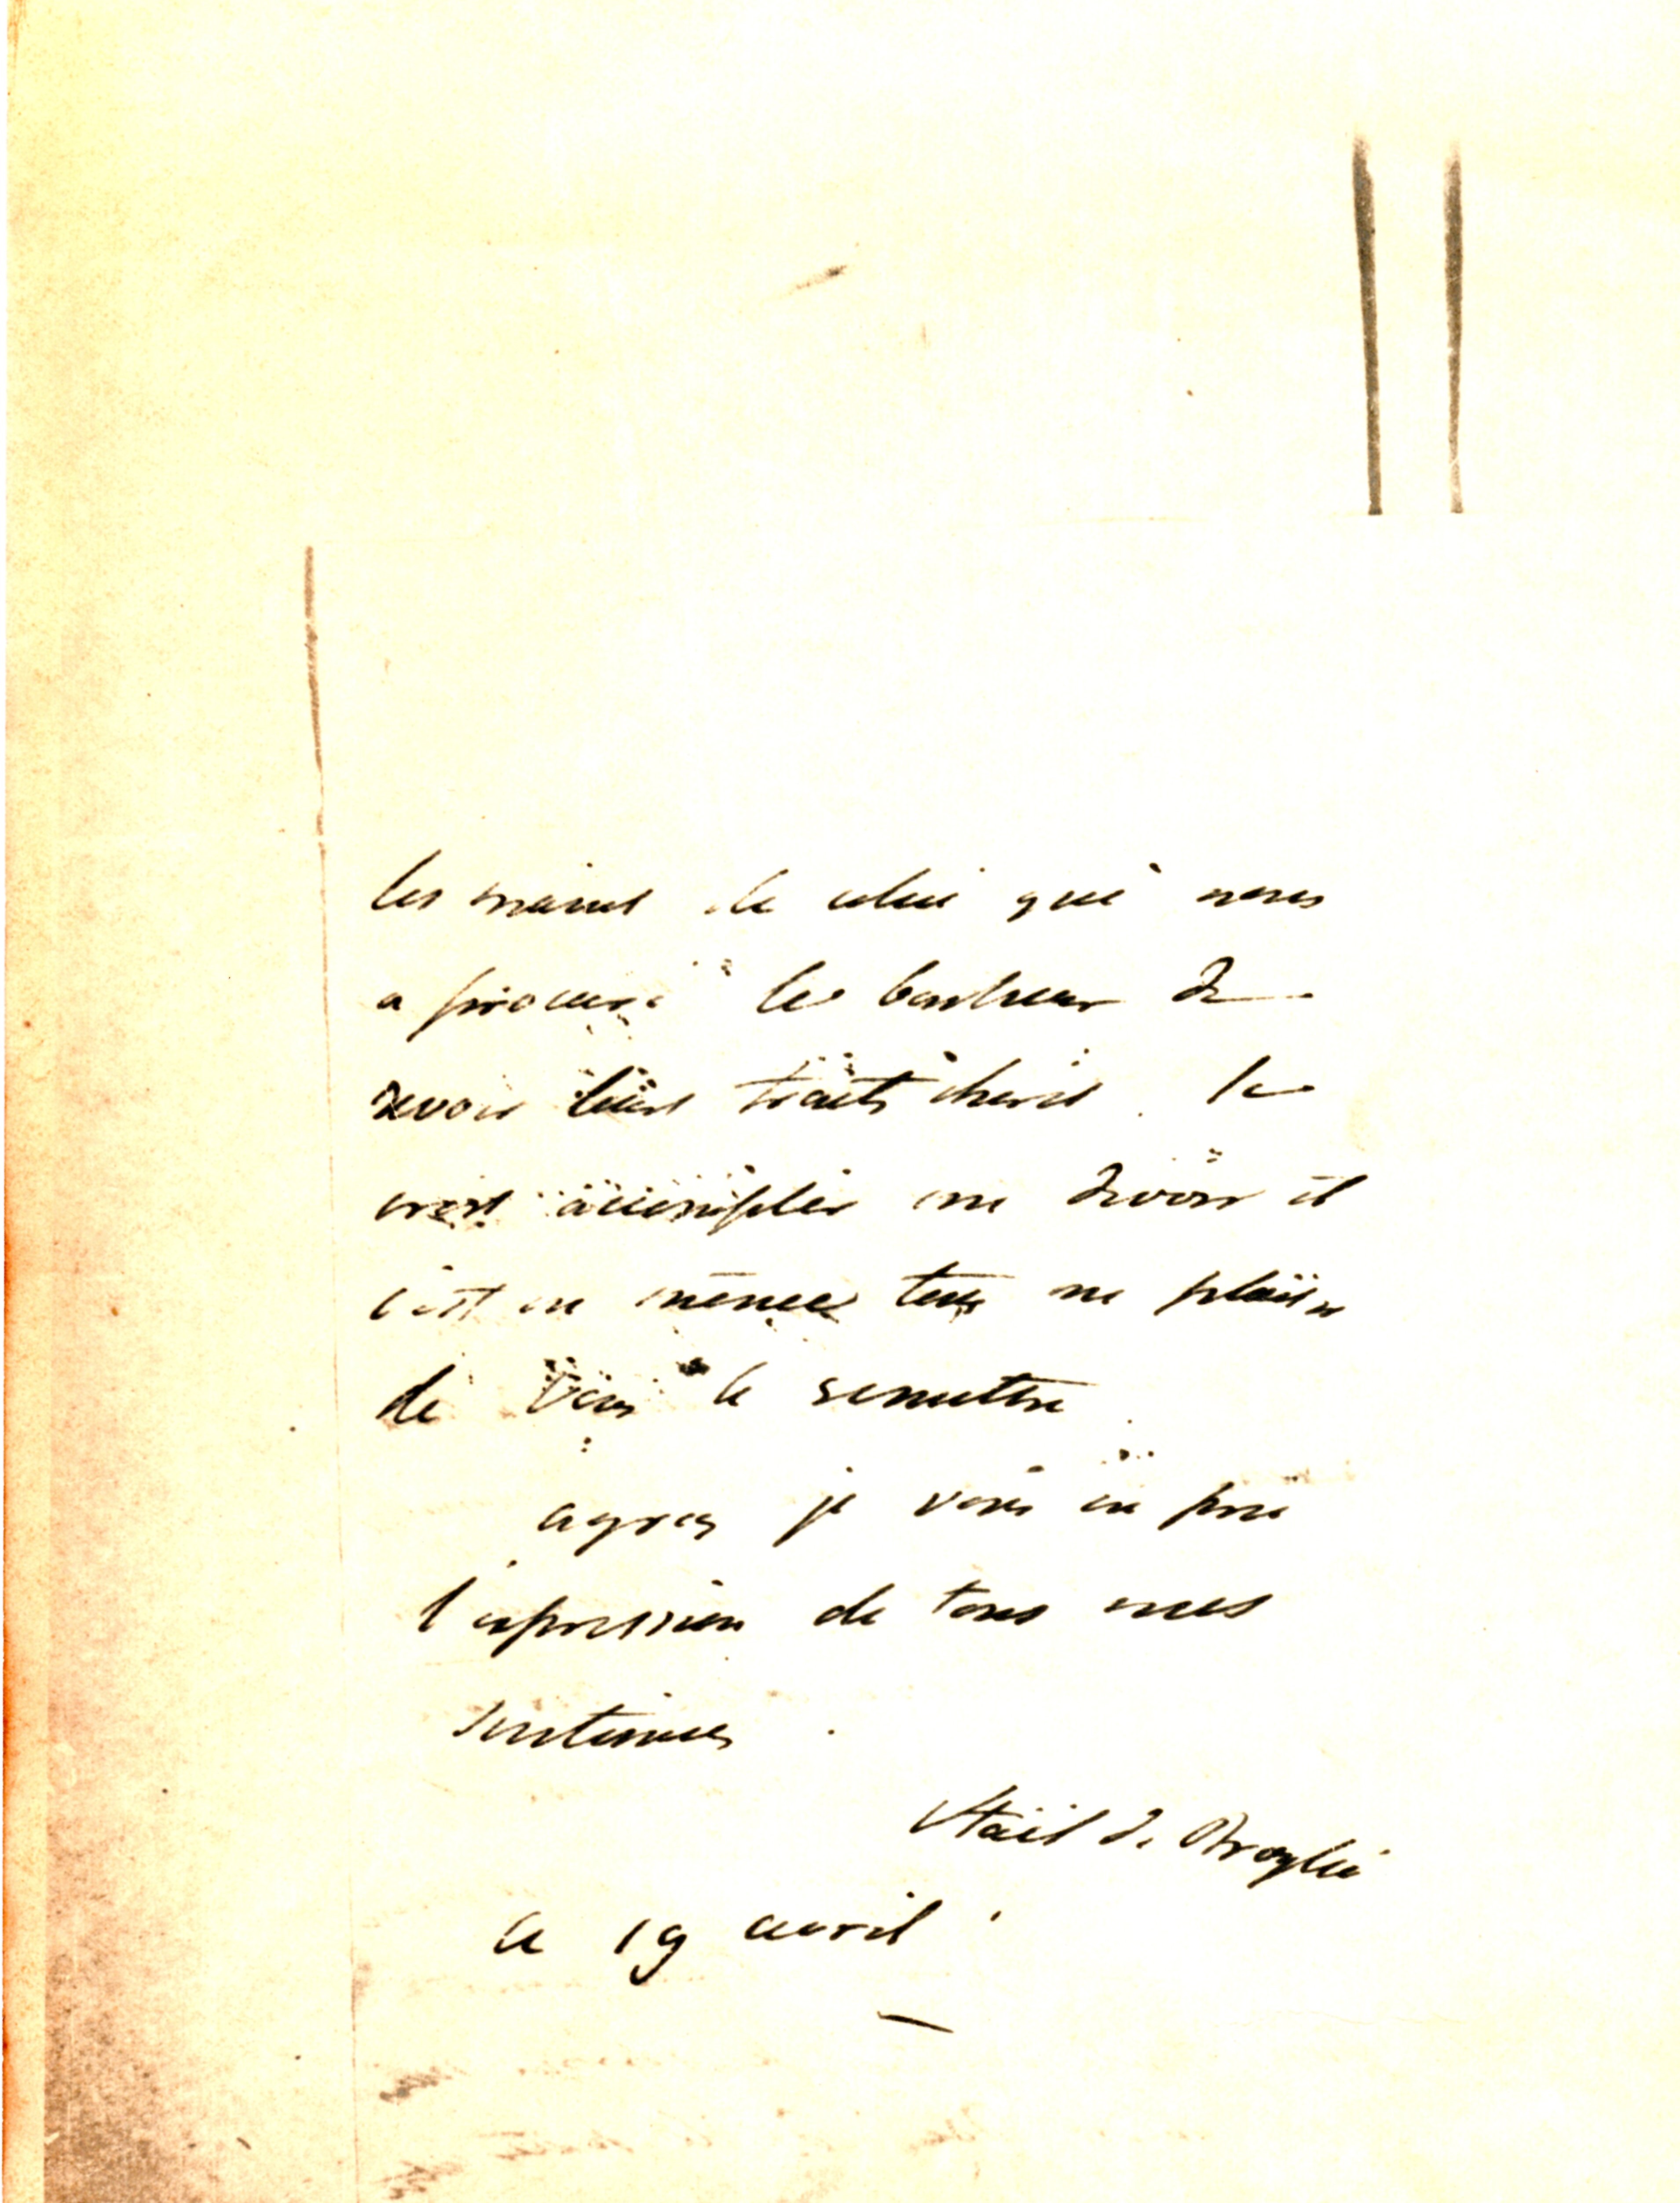 les mains de celui qui nous
a procuré le bonheur de
revoir leurs traits chéris. le
accomplir un devoir et
c'est en même tems un plaisir
de vous le remettre
agreez je vous en prie
l'expression de tous mes
sentimens.
Staël de Broglie
ce 19 avril